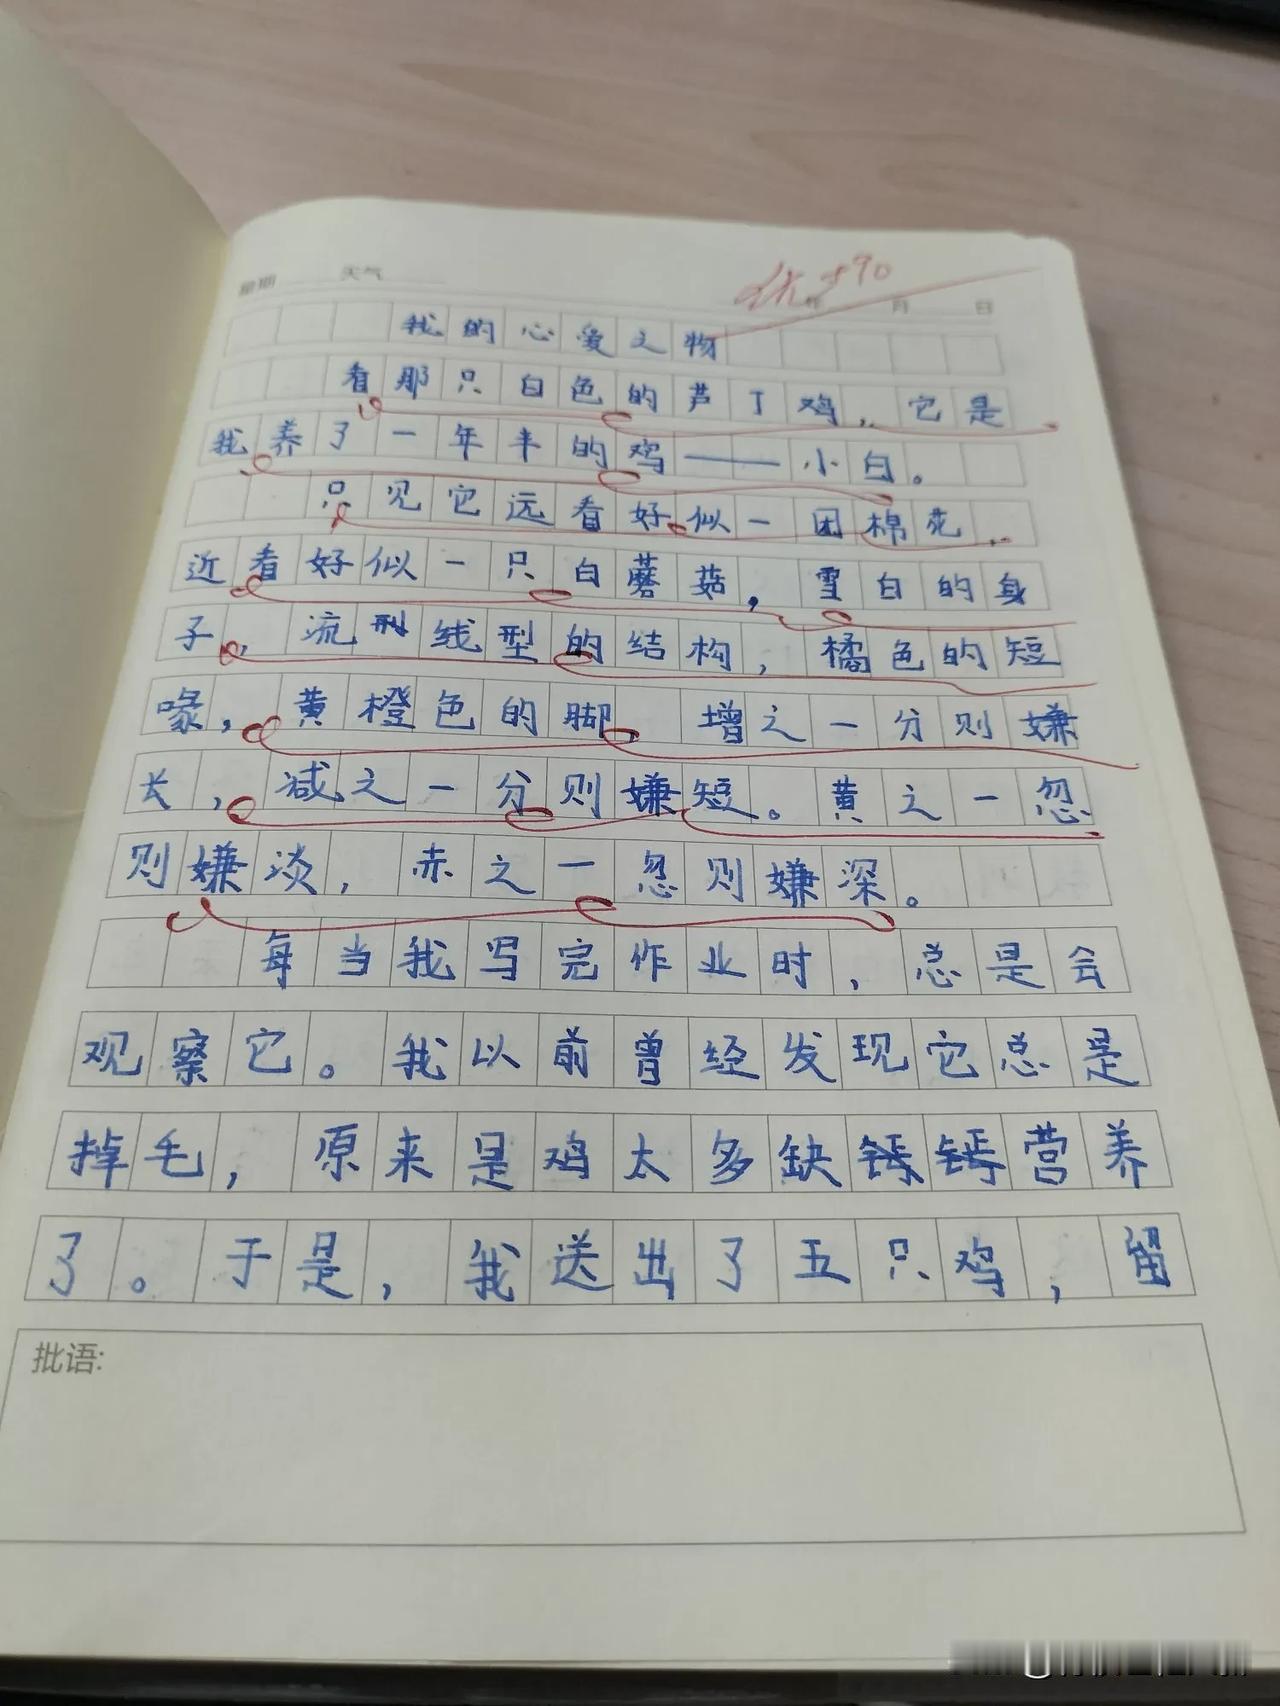 星期 天气 优+90
年 月 日
我的心爱之物
看那只白色的芦丁鸡，它是
我养了一年半的鸡——小白。
只见它远看好似一团棉花，
近看好似一只白蘑菇，雪白的身
子，流型线型的结构，橘色的短
喙，黄橙色的脚，增之一分则嫌
长，减之一分则嫌短。黄之一忽
则嫌淡，赤之一忽则嫌深。
每当我写完作业时，总是会
观察它。我以前曾经发现它总是
掉毛，原来是鸡太多缺钙钙营养
了。于是，我送出了五只鸡，留
批语: